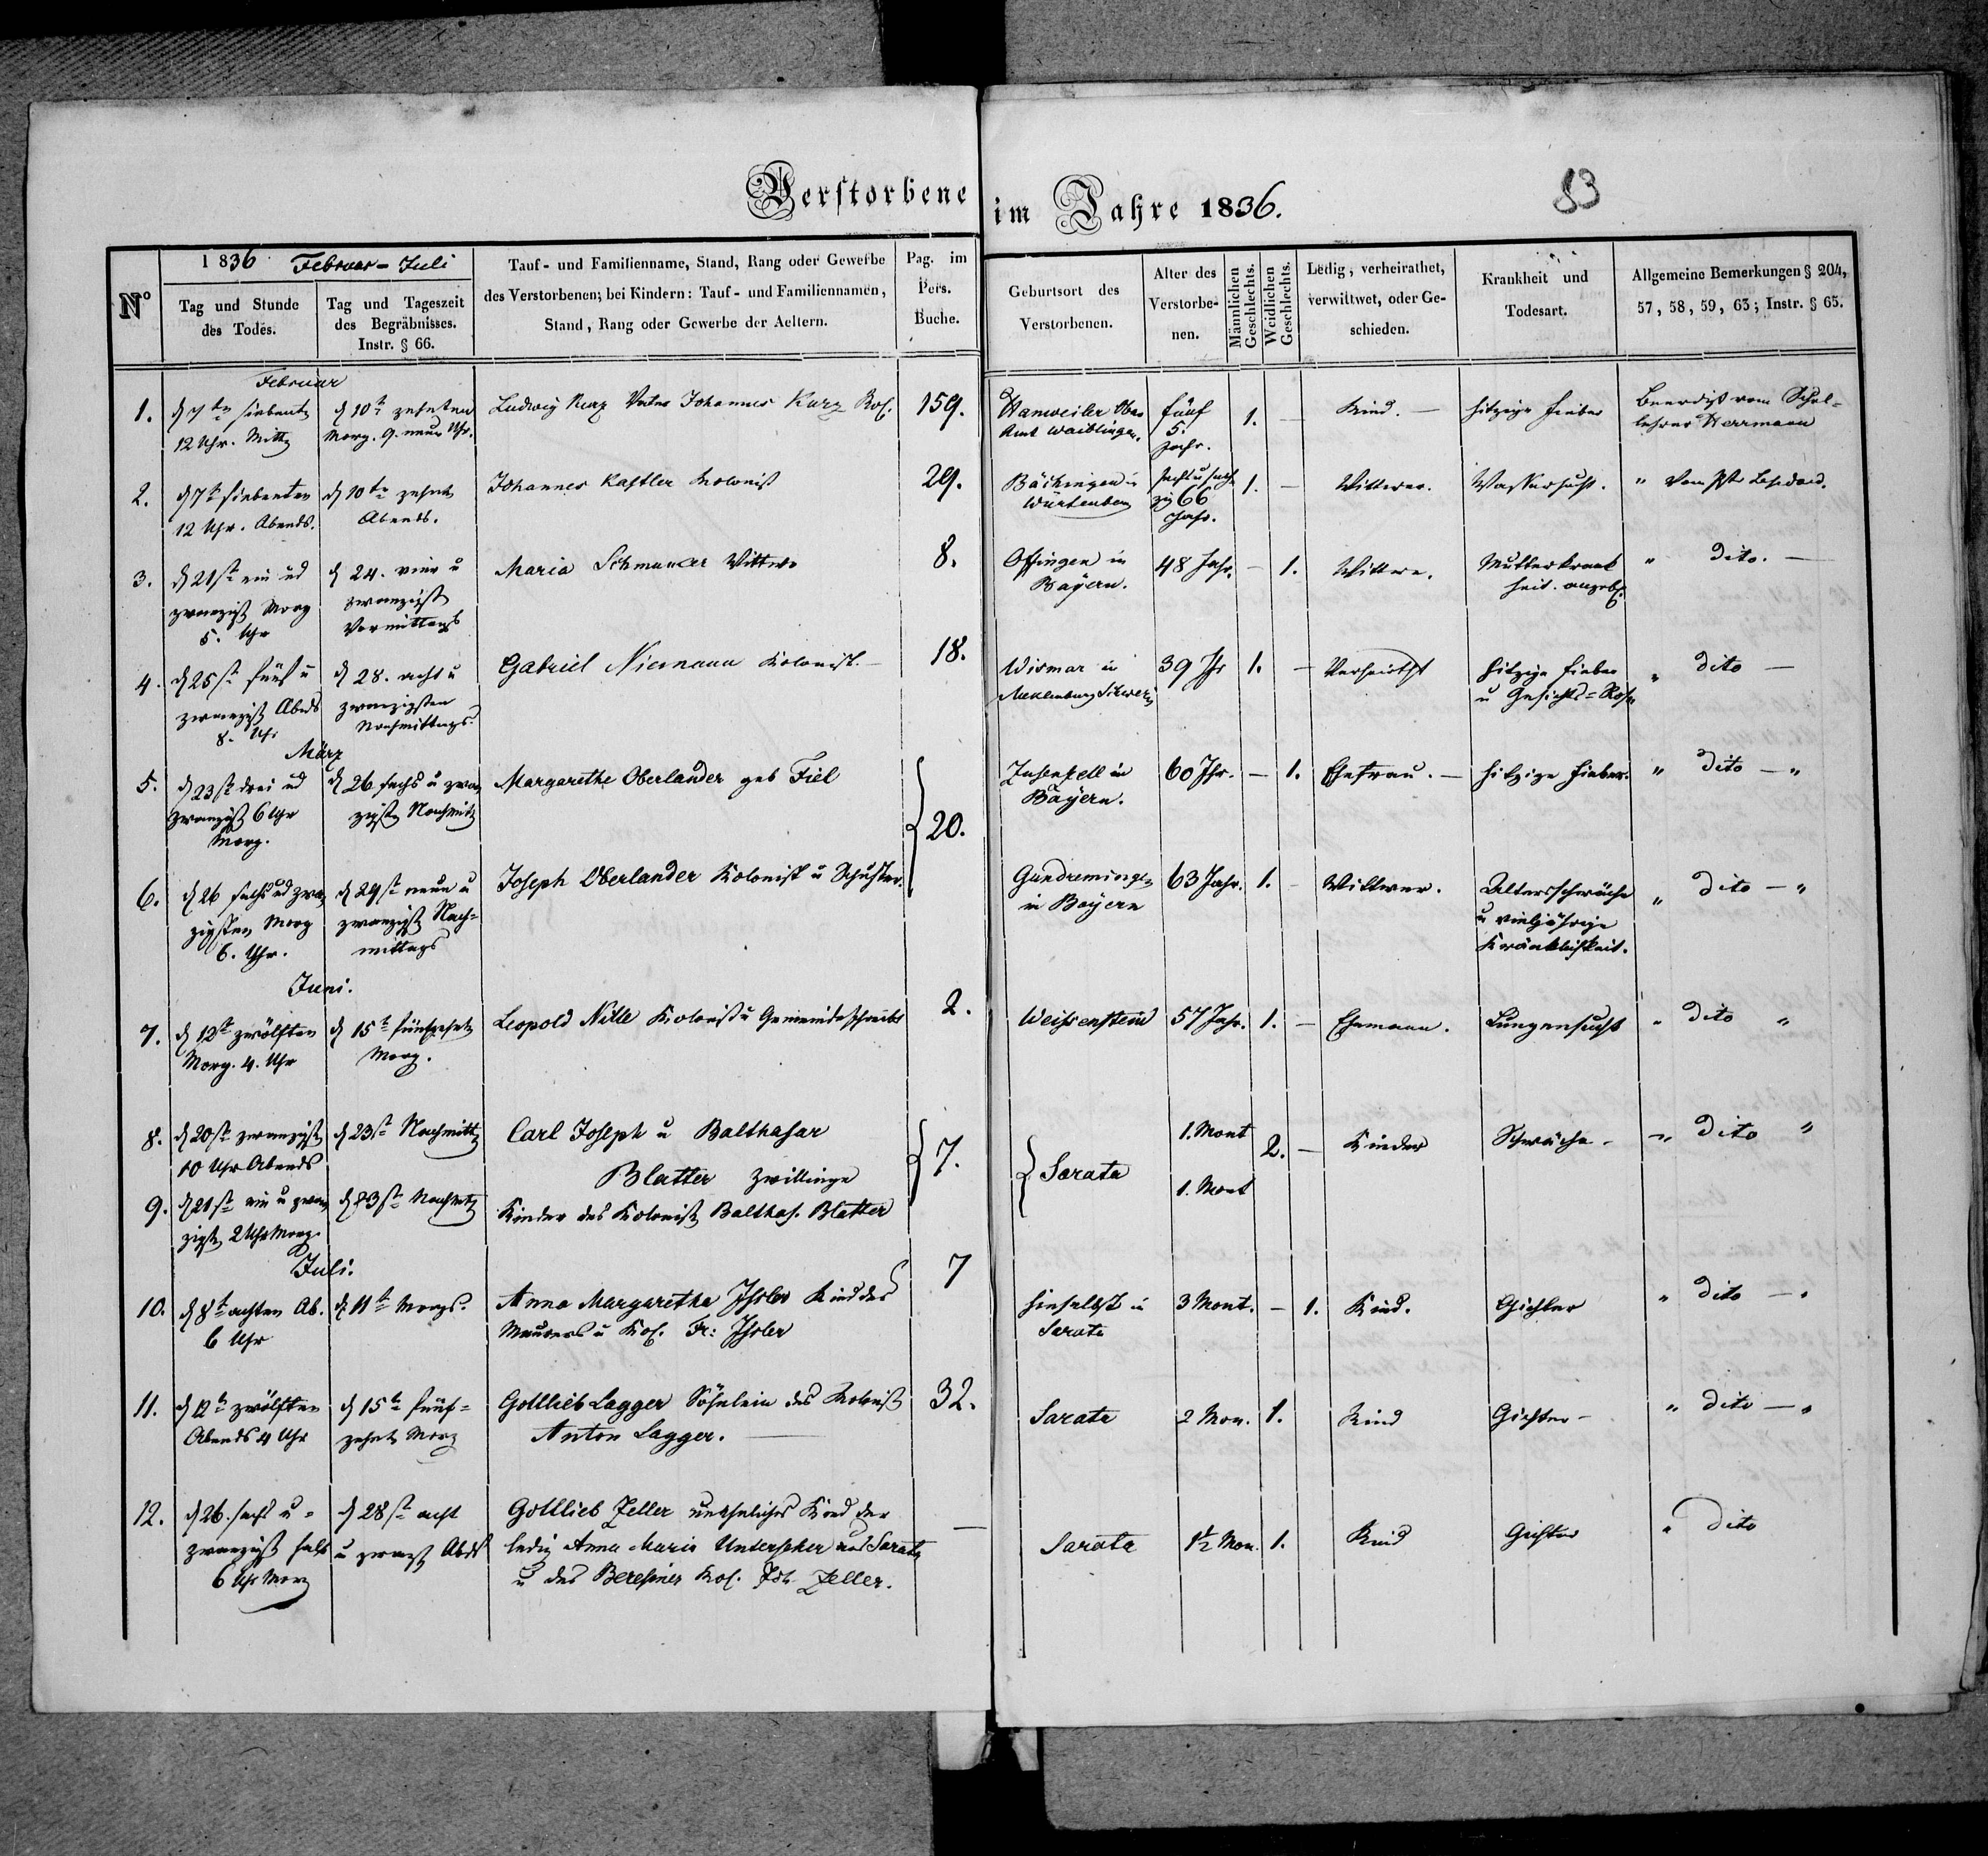 Verstorbene im Jahre 1836.
83
1836 Februar - Juli
No
Tag und Stunde
des Todes.
Tag und Tageszeit
des Begräbnisses.
Instr. § 66.
Tauf- und Familienname, Stand, Rang oder Gewerbe
des Verstorbenen; bei Kindern: Tauf- und Familiennamen,
Stand, Rang oder Gewerbe der Aeltern.
Pag. im
Pers.
Buche.
Geburtsort des
Verstorbenen.
Alter des
Verstorbe-
nen.
Männlichen
Geschlechts.
Weiblichen
Geschlechts.
Ledig, verheirathet,
verwittwet, oder Ge-
schieden.
Krankheit und
Todesart.
Allgemeine Bemerkungen § 204,
57, 58, 59, 63; Instr. § 65.
Februar
1.
d 7ten siebenten
12 Uhr. Mittg
d 10t zehnten
Morg. 9. neun Uhr.
Ludwig Kurz Vater Johannes Kurz Kol.
159.
Hanweiler Ober
Amt Waiblingen.
fünf
5.
Jahr.
1.
—
Kind. —
hitzige Fieber
Beerdigt vom Schul-
lehrer Herrmann
2.
d 7t siebenten
12 Uhr. Abends.
d 10te zehnt
Abends.
Johannes Kastler Kolonist
29.
Bächingen in
Würtenberg
66
Jahr.
1.
—
Wittwer.
Wassersucht.
" vom
3.
d 21st ein und
zwanzigst Morg
5. Uhr
d 24. vier u
zwanzigst
Vormittags
Maria Wittwe
8.
Offingen in
Bayern.
48 Jahr.
—
1.
Wittwe.
Mutterkrank
heit.
" dito. —
4.
d 25st fünf u
zwanzigst Abends
8. Uhr
d 28. acht u
zwanzigsten
Nachmittags
Gabriel Niemann Kolonist. —
18.
Wismar in
Meklenburg Schwerin
39 Jhr
1.
—
Verheirathet
hitzige Fieber
u Gesichts-Rose
" dito —
März
5.
d 23st drei und
zwanzigst 6 Uhr
Morg.
d 26 sechs u zwan
zigste Nachmitg
Margarethe Oberlander geb Fiel
20.
in
Bayern.
60 Jhr.
—
1.
Ehefrau. —
hitzige Fieber.
" dito — "
6.
d 26 sechs und zwan
zigsten Morg
6. Uhr.
d 29st neun u
zwanzigst Nach-
mittags
Joseph Oberlander Kolonist u Schuster.
Gundremingen
in Bayern
63 Jahr.
1.
—
Wittwer.
Altersschwäche
u vieljährige
Kränklichkeit.
" dito — "
Juni.
7.
d 12t zwölften
Morg. 4. Uhr
d 15t fünfzehnt
Morg.
Leopold Nille Kolonist u Gemeindeschreiber
2.
Weissenstein
57 Jahr.
1.
—
Ehemann.
Lungensucht
" dito "
8.
d 20st zwanzigst
10 Uhr Abends
d 23st Nachmittg
Carl Joseph u Balthasar
Blatter Zwillinge
7.
Sarata
1. Mont
2.
—
Kinder
Schwäche.
" dito "
9.
d 21st ein u zwan
zigst 2 Uhr Morg.
d 23st Nachmtg
Kinder des Kolonist Balthas. Blatter
1. Mont
Juli.
10.
d 8t achten Ab.
6 Uhr
d 11t Morgs.
Anna Margaretha Ihsler Kind des
Maurers u Kol. Fr: Ihsler
7
hieselbst in
Sarata
3 Mont.
—
1.
Kind.
Gichter
" dito — "
11.
d 12t zwölften
Abends 4 Uhr
d 15t fünf-
zehnt Morg
Gottlieb Lagger Söhnlein des Kolonist
Anton Lagger. —
32.
Sarata
2 Mon.
1.
Kind
Gichter —
" dito — "
12.
d 26. sechs u
zwanzigst halb
6 Uhr Morg
d 28st acht
u zwanzigst Abds
Gottlieb Zeller uneheliches Kind der
ledig Anna Maria Unterseher aus Sarata
u des Beresiner Kol. Joh Zeller.
—
Sarata
1½ Mon.
1.
Kind
Gichter
" dito